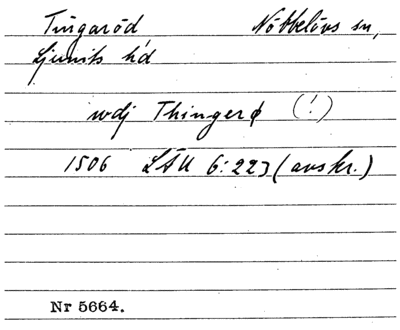 Tingaröd Nöbbelövs sn,
Ljunits hd
wdj Thingerø (!)
1506 LÄU 6:223 (avskr.)
Nr 5664.